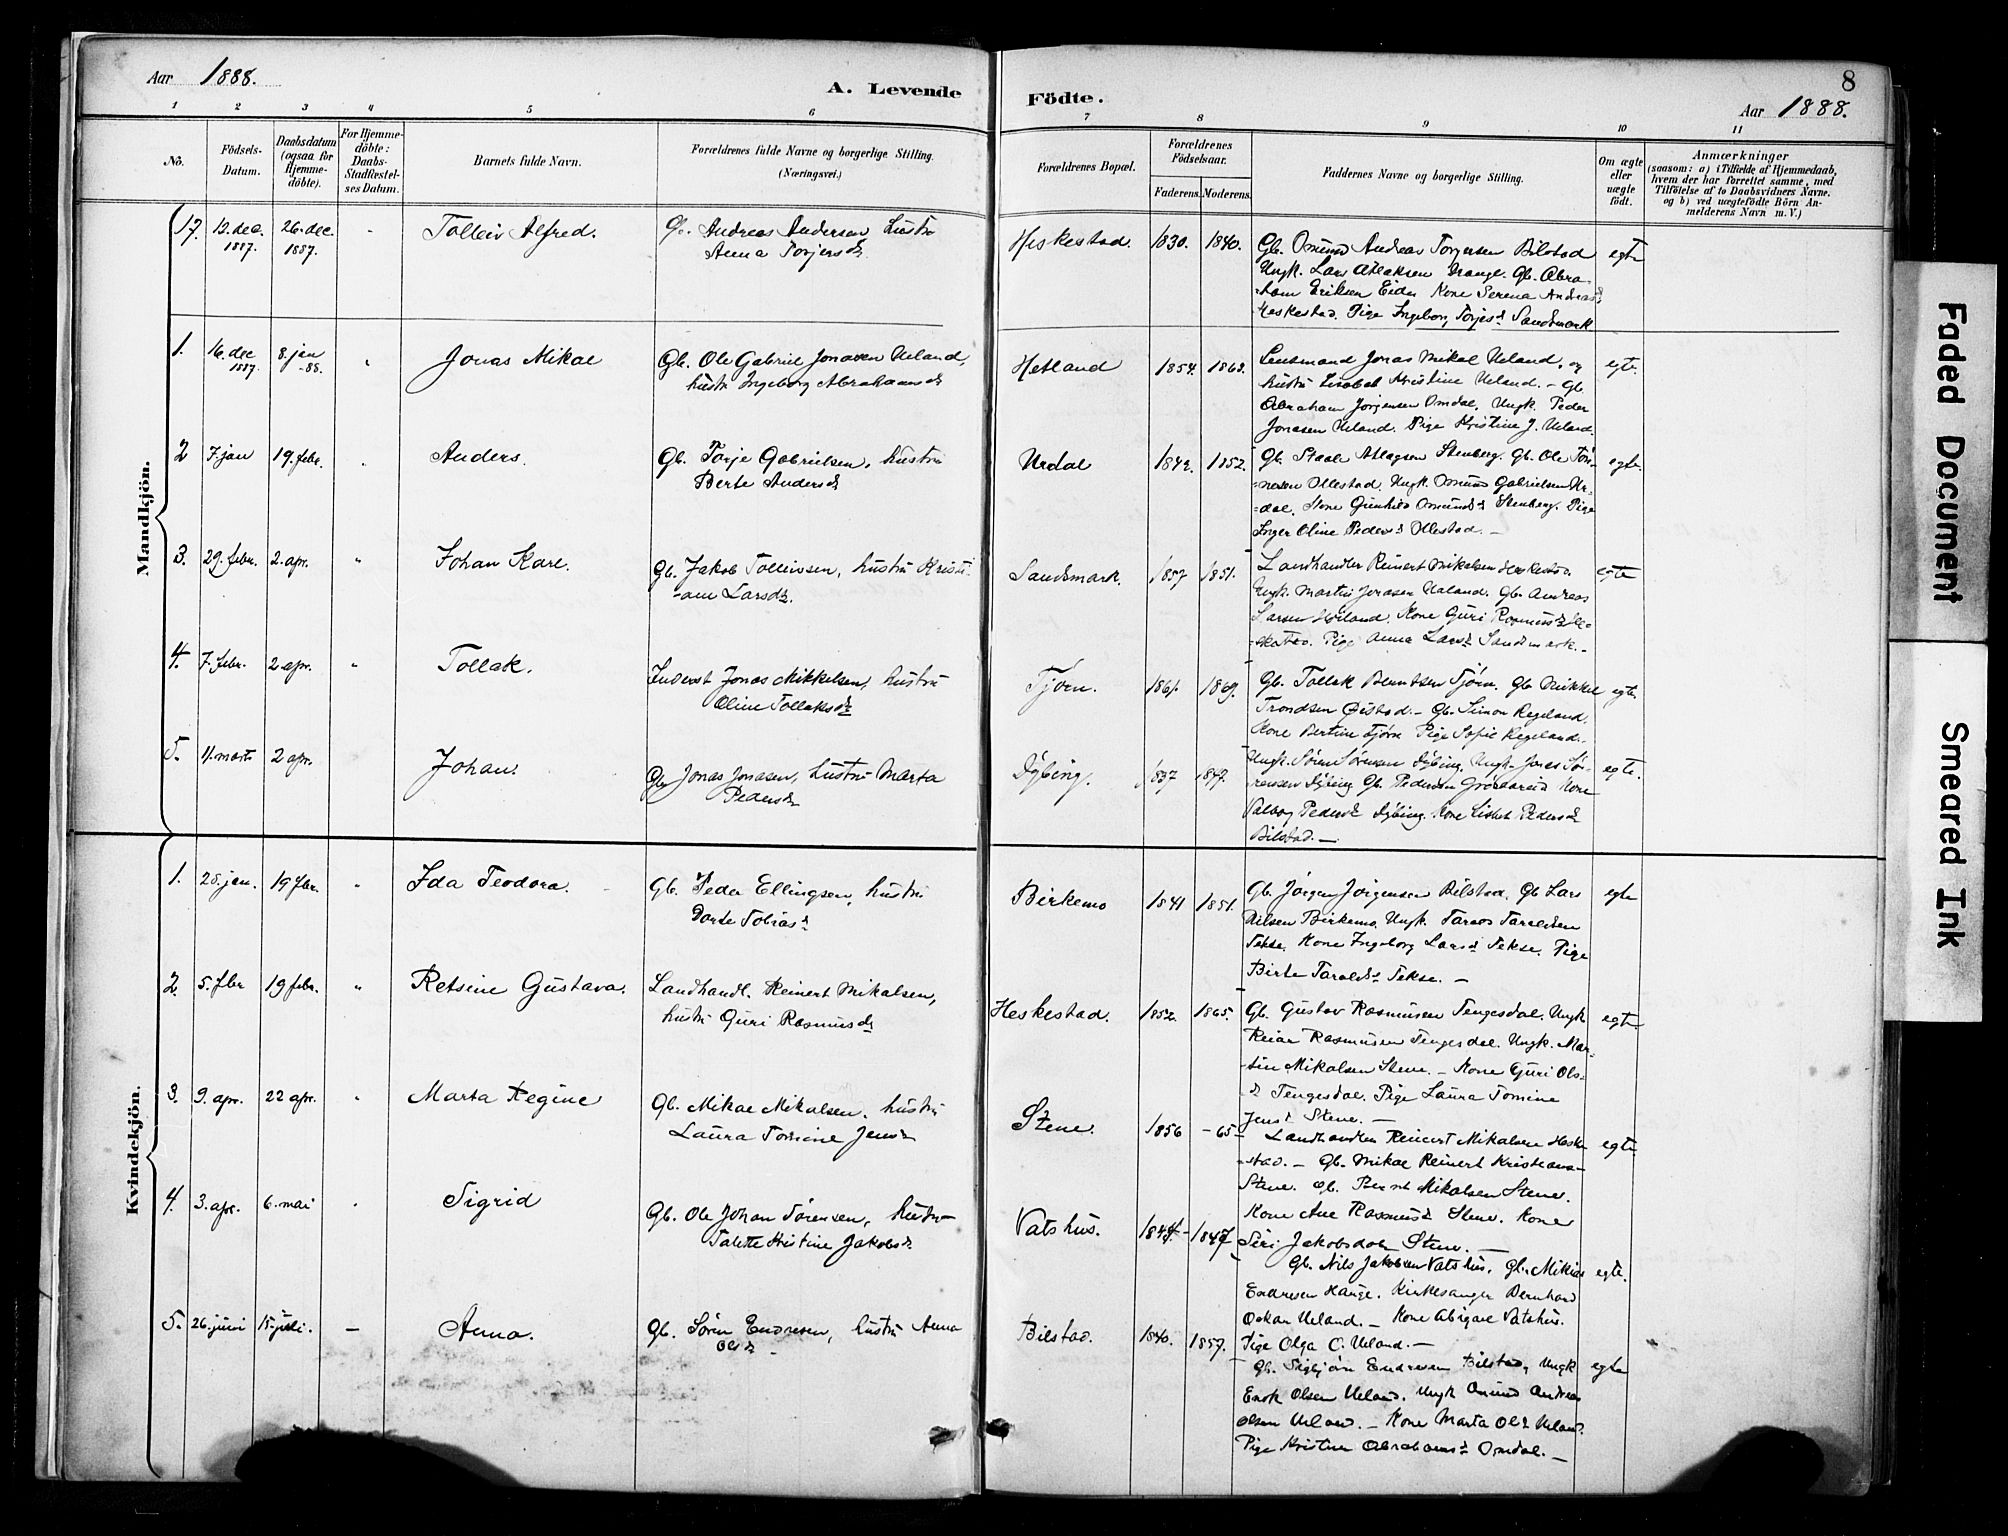 8
Aar 1888.
A. Levende Födte.
Aar 1888.
1 2 3 4 5 6 7 8 9 10 11
No.
Födsels-
Datum.
Daabsdatum
(ogsaa for
Hjemme-
döbte).
For Hjemme-
döbte:
Daabs-
Stadfæstel-
ses Datum.
Barnets fulde Navn.
Forældrenes fulde Navne og borgerlige Stilling.
(Næringsvei.)
Forældrenes Bopæl.
Forældrenes
Födselsaar.
Faderens. Moderens.
Faddernes Navne og borgerlige Stilling.
Om ægte
eller
uægte
født.
Anmærkninger
(saasom: a) i Tilfælde af Hjemmedaab,
hvem der har forrettet samme, med
Tilföielse af to Daabsvidners Navne,
og b) ved uægtefödte Börn An-
melderens Navn m. V.)
Mandkjön.
17. 12. dec. 1887. 26. dec. 1887. Tolleiv Alfred.
Gb. Andreas Andersen hustru
Anna Torjersd.
Heskestad. 1830. 1840.
Gb. Omund Andreas Torgersen Bilstad
Ungk. Lars Atlaksen. Gb. Abra-
ham Eriksen Eide Kone Serena Andreasd
Heskestad. Pige Ingeborg Torjesd Sandsmark
egte
1. 16. dec 1887. 8. jan -88. " Jonas Mikal
Gb. Ole Gabriel Jonasen Ueland,
hustru Ingeborg Abrahamsd
Hetland 1854. 1862.
Lensmand Jonas Mikal Ueland, og
hustru Lisabet Kristine Ueland. - Gb.
Abraham Jörgensen Omdal. Ungk. Peder
Jonasen Ueland. Pige Kristine J. Ueland.
egte.
2 7. jan 19. febr. " Anders.
Gb. Torje Gabrielsen, hustru
Berte Andersd
Urdal 1842. 1852.
Gb. Staale Atlagsen Stenberg. Gb. Ole Tön-
nesen Ollestad. Ungk. Omund Gabrielsen Ur-
dal. Kone Gunhild Omundsd Stenberg. Pige
Inger Oline Pedersd Ollestad. -
egte.
3. 29. febr. 2. apr. " Johan Karl.
Gb. Jakob Tolleivsen, hustru Kristi-
ane Larsd.
Sandsmark. 1857 1851.
Landhandler Reinert Mikalsen Heskestad.
Ungk. Martin Jonasen Ueland. Gb. Andreas
Larsen. Kone Guri Rasmusd He-
skestad. Pige Anna Larsd Sandsmark. -
egte
4. 7. febr. 2 apr. " Tollak.
Inderst Jonas Mikkelsen, hustru
Oline Tollaksd
Tjörn. 1861. 1869.
Gb. Tollak Berntsen Tjörn. Gb. Mikkel
Trondsen. - Gb. Simon Regeland.
Kone Bertine Tjörn Pige Sofie Regeland.
egte.
5. 11. marts 2 apr. Johan.
Gb. Jonas Jonasen, hustru Marta
Pedersd
Dybing. 1837 1847.
Ungk. Sören Sörensen Dybing. Ungk. Jonas Sör-
rensen Dybing Gb. Pedersen Kone
Valborg Pedersd Dybing. Kone Lisbet Pedersd
Bilstad. -
egte.
Kvindekjön.
1. 28. jan. 19 febr. " Ida Teodora.
Gb. Peder Ellingsen, hustru
Dorte Tobiasd
Birkemo 1841 1851.
Gb. Jörgen Jörgensen Bilstad. Gb Lars
Nilsen Birkemo. Ungk. Tarald Taraldsen
Tekse. Kone Ingeborg Larsd Tekse. Pige
Birte Taraldsd Tekse. -
egte
2. 5. febr 19 febr. " Retsine Gustava.
Landhandl. Reinert Mikalsen,
hustru Guri Rasmusd
Heskestad. 1852. 1865.
Gb. Gustav Rasmusen Tengesdal. Ungk
Reiar Rasmusen Tengesdal. Ungk. Mar-
tin Mikalsen Stene. - Kone Guri Ols-
d Tengesdal. Pige Laura Tomine
Jensd Stene. -
egte
3. 9. apr. 22 apr. " Marta Regine
Gb. Mikal Mikalsen, hustru
Laura Tomine Jensd
Stene. 1856 - 65
Landhandler Reinert Mikalsen Heske-
stad. - Gb. Mikal Reinert Kristians-
Stene. Gb. Bernt Mikalsen Stene.
Kone Ane Rasmusd Stene. Kone
Siri Jakobsdatr Stene. -
egte
4. 3. apr. 6. mai " Sigrid
Gb. Ole Johan Sörensen, hustru
Talette Kristine Jakobsd
Vatshus. 1844. - 1847
Gb. Nils Jakobsen Vatshus. Gb. Mikias
Endresen Hauge. Kirkesanger Bernhard
Oskar Ueland. - Kone Abigael Vatshus.
Pige Olga O. Ueland. -
egte.
5. 26. juni 15. juli. - Anna.
Gb. Sören Endresen, hustru Anna
Olsd -
Bilstad. 1840. 1857.
Gb. Sigbjörn Endresen Bilstad, Ungk
Enok Olsen Ueland. Ungk Omund Andreas
Olsen Ueland. - Kone Marta Olsd Ueland.
Pige Kristine Abrahamsd Omdal. -
egte
Faded Document
Smeared Ink